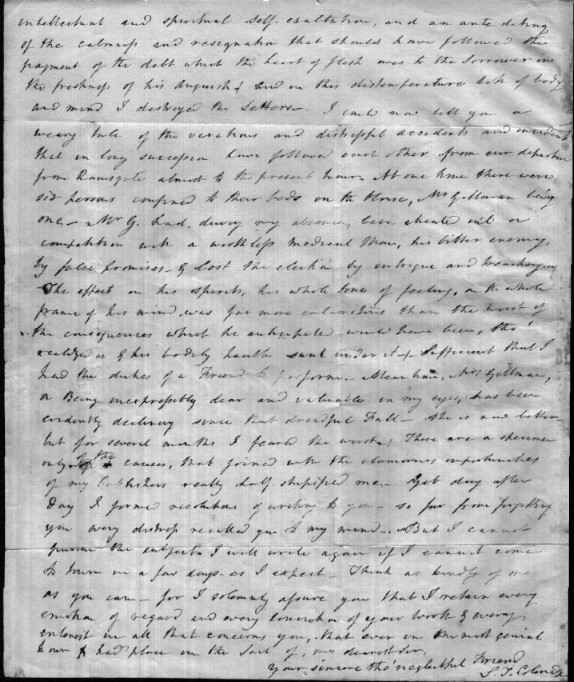 intellectual and spiritual self-exaltation, and an ante dating
of the calmness and resignation that should have followed the
payment of the debt which the heart of flesh owes to the Sorrower in
the freshness of his Anguish & and in this distemperature both of body
and mind I destroyed the Letters. — I could now tell you a
weary tale of the vexatious and distressful accidents and incidents
that in long succession have followed each other from our departure
from Ramsgate almost to the present hour. At one time there were
six persons confined to their beds in the House, Mr Gillman being
one — Mr G. had, during my absence, been cheated into a
competition with a worthless medical Man, his bitter enemy,
by false promises — & lost the election by intrigue and treachery
The effect on his Spirits, his whole tone of feeling, on the whole
frame of his mind was far more calamitous than the worst of
the consequences which he anticipated would have been, tho'
realized & his bodily health sunk under it — Sufficient that I
had the duties of a Friend to perform. Mrs Gillman,
a Being inexpressibly dear and valuable in my eyes, has been
evidently declining since that dreadful Fall — She is now better
but for several months I feared the worst. These are a specimen
only of the causes, that joined with the clamorous importunities
of my Publishers really half stupified me — Yet day after
day I formed resolutions of writing to you — so far from forgetting
you every distress recalled you to my mind — But I cannot
pursue the subject. I will write again if I cannot come
to town in a few days — as I expect — Think as kindly of me
as you can — for I solemnly assure you that I retain every
emotion of regard and every conviction of your Worth & every
interest in all that concerns you, that ever in the most genial
hour had place in the Soul of, my dearest Sir,
Your sincere tho' neglectful Friend
S. T. Coleridge